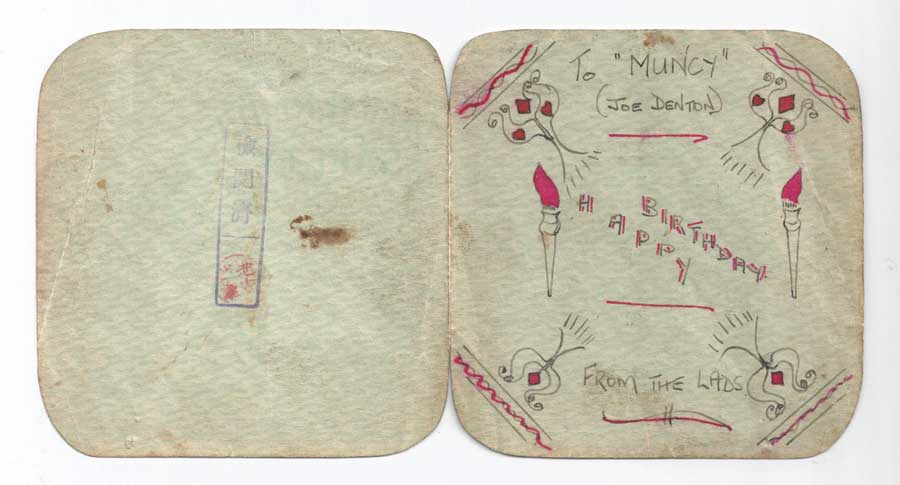 検閲済
To "MUNCY"
(JOE DENTON)
HAPPY
BIRTHDAY
FROM THE LADS